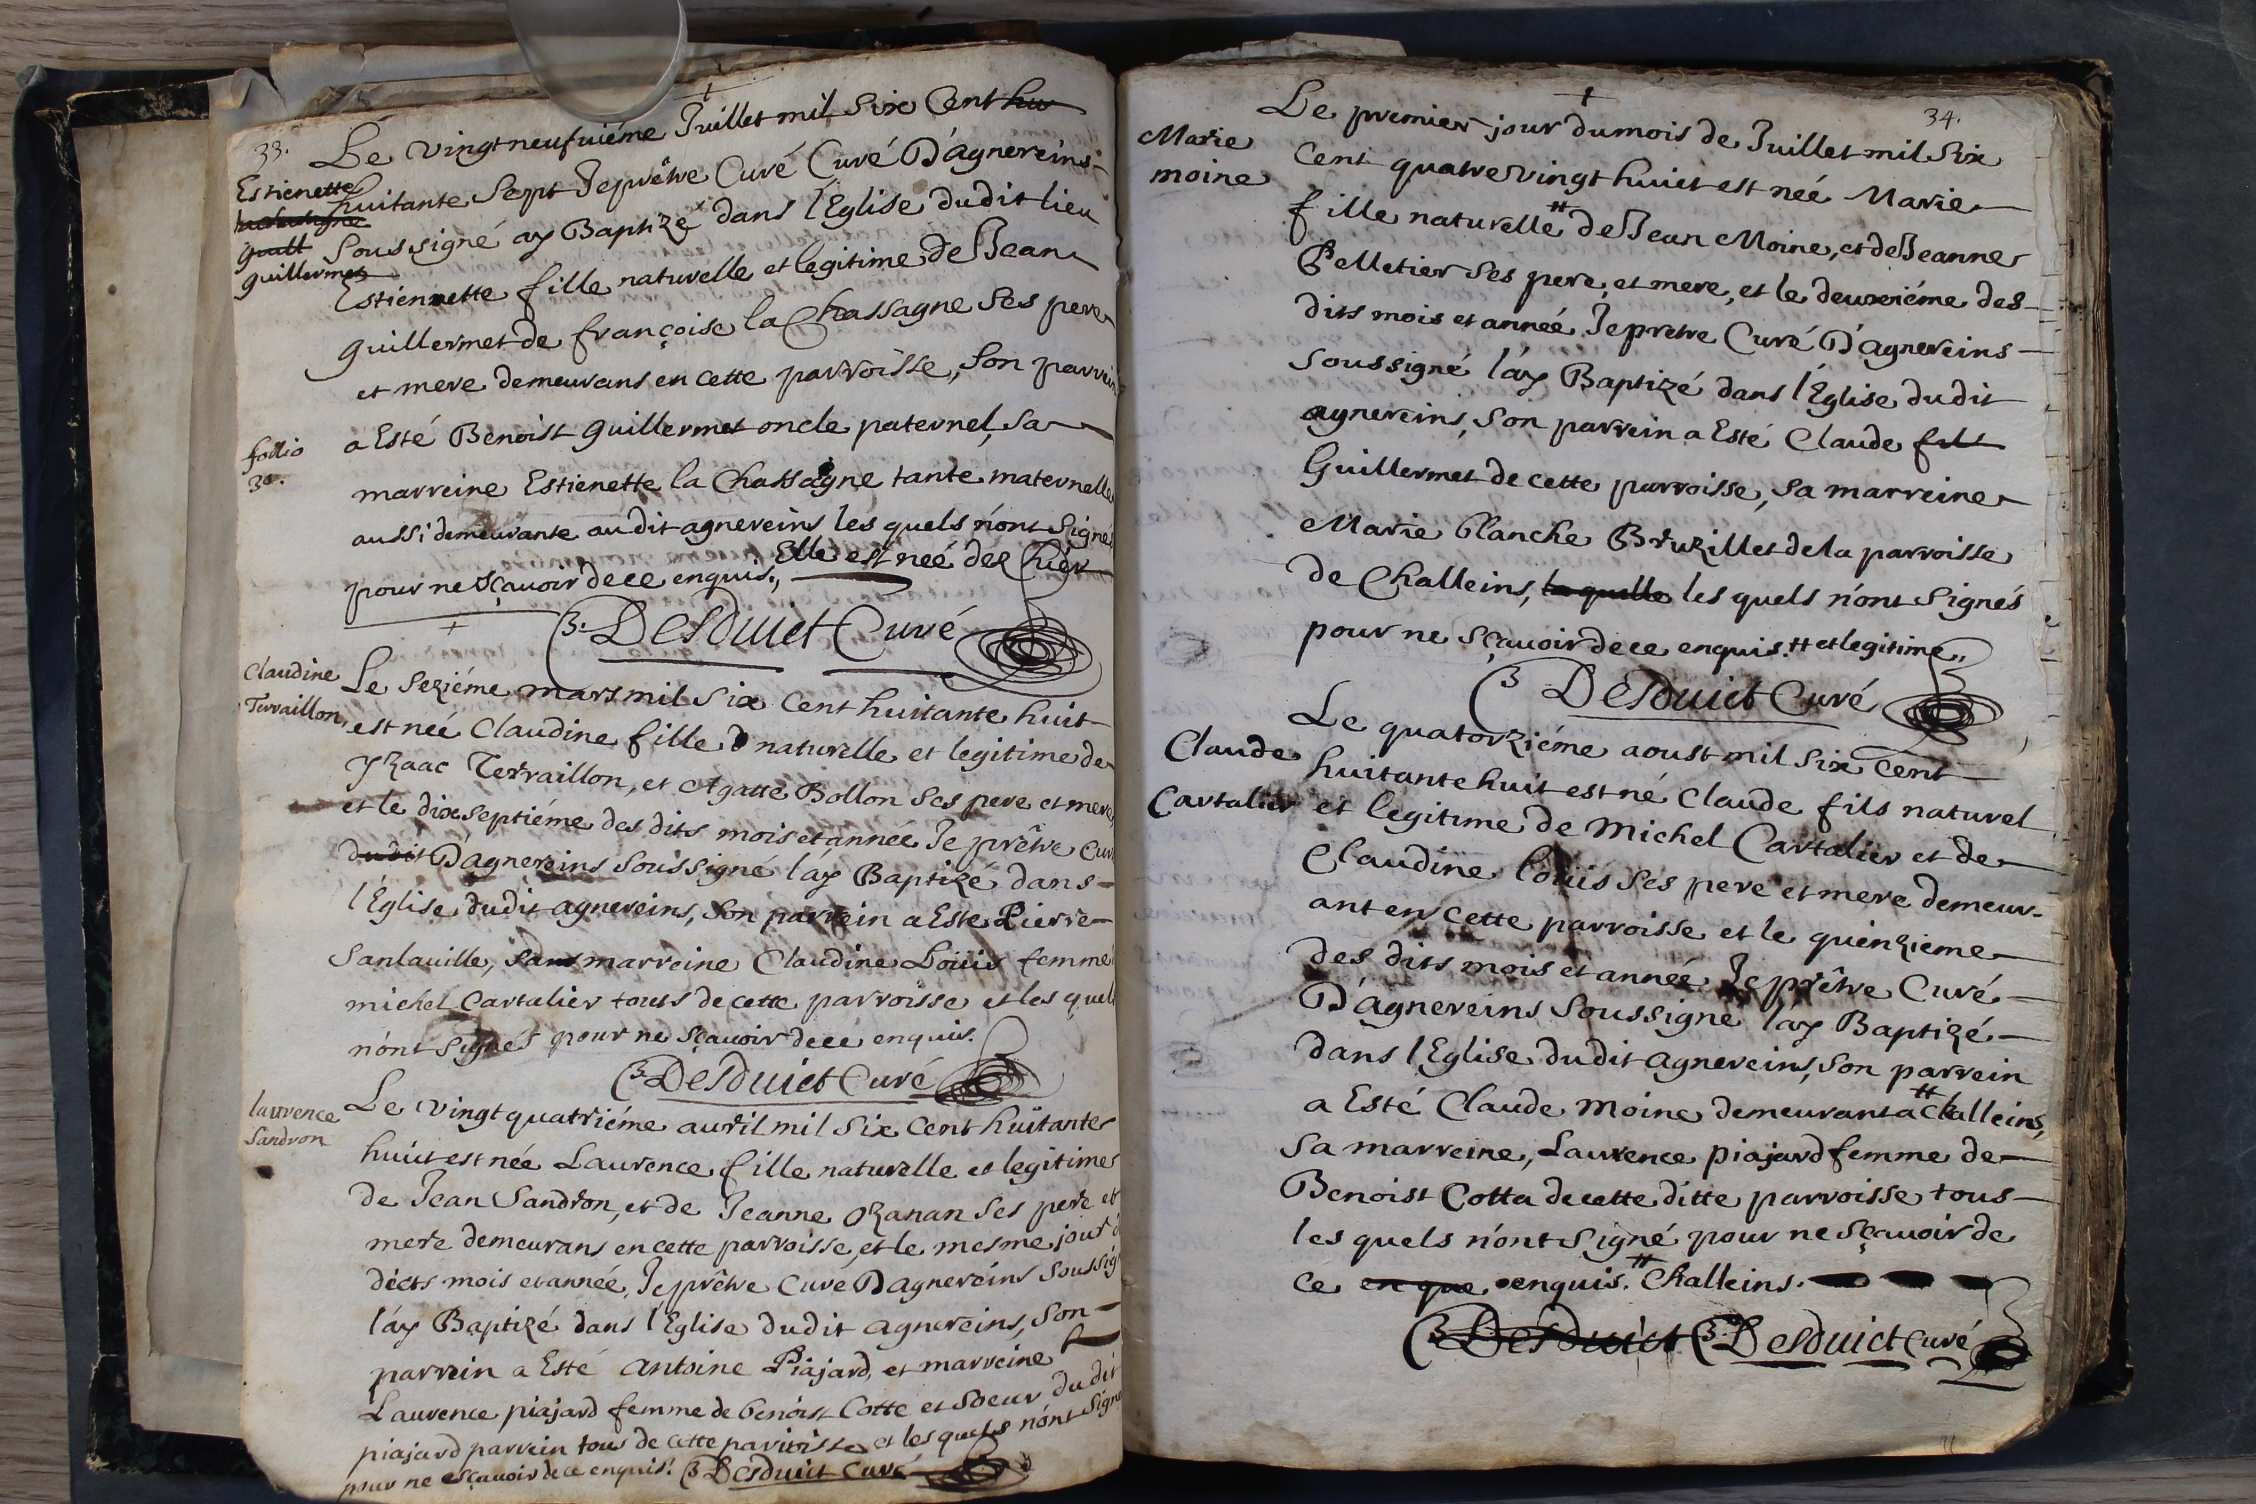 33.
Le vingtneufuiéme Juillet mil six Cent hu
Estienette
huitante Sept Je prêtre Curé Curé D'agnereins
la chassagne
guill
Soussigné ay Baptizé dans l'Eglise dudit lieu
guillermet
Estiennette fille naturelle et legitime de Jean
guillermet de françoise la Chassagne Ses pere
et mere demeurans en cette parroisse, Son parrein
a Esté Benoist guillermet oncle paternel, Sa
follio
30.
marreine Estienette la Chassagne tante maternelle
aussi demeurante audit agnereins les quels n'ont Signés
pour ne Sçauoir de ce enquis., Elle est neé dez hier
B. Desduict Curé
Claudine
Terraillon
Le Seziéme mars mil six Cent huitante huit
est neé Claudine fille naturelle et legitime de
Yzaac Terraillon, et Agatte Bollon Ses pere et mere,
et le dixseptiéme des dits mois et anneé Je prêtre Cur
dudit D'agnereins Soussigné l'ay Baptizé dans
l'Eglise dudit agnereins, Son parrein a Esté Pierre
Sanlauille, sa marreine Claudine Loüis femme
michel Cartalier touts de cette parroisse et les quels
n'ont Signés pour ne Sçauoir de ce enquis.
B. Desduict Curé
laurence
Sandron
Le vingtquatriéme auril mil Six Cent huitante
huit est née Laurence fille naturelle et legitime
de Jean Sandron, et de Jeanne Ozanan Ses pere et
mere demeurans en cette parroisse, et le mesme jour d
dicts mois et anneé, Je prêtre Curé D'agnereins Soussig
l'ay Baptizé dans l'Eglise dudit agnereins, Son
parrein a Esté antoine Piajard, et marreine
Laurence piajard femme de benoist Cotte et Soeur dudit
piajard parrein tous de cette parroisse et les quels n'ont Signé
pour ne Sçauoir de ce enquis. B Desduict Curé
34.
Marie
moine
Le premier jour du mois de Juillet mil Six
Cent quatre vingt huict est neé Marie
fille naturelle # de Jean Moine, et de Jeanne
Pelletier Ses pere, et mere, et le deuxiéme des
dits mois et anneé Je pretre Curé D'agnereins
soussigné l'ay Baptizé dans l'Eglise dudit
agnereins, Son parrein a Esté Claude fill
Guillermet de cette parroisse, Sa marreine
Marie blanche Bruzillet de la parroisse
de Challeins, la quelle les quels n'ont Signés
pour ne Sçauoir de ce enquis. # et legitime,,
B Desduict Curé
Claude
Cartalier
Le quatorziéme aoust mil Six Cent
huitante huit est né Claude fils naturel
et legitime de michel Cartalier et de
Claudine loüis Ses pere et mere demeur-
ant en cette parroisse et le quinzieme
des dits mois et anneé Je prêtre Curé
D'agnereins Soussigné l'ay Baptizé
dans l'Eglise dudit agnereins, Son parrein
a Esté Claude moine demeurant a # Challeins,
Sa marreine, Laurence piajard femme de
Benoist Cotta de cette ditte parroisse tous
les quels n'ont Signé pour ne Sçauoir de
ce en que enquis. # Challeins.
B Desduict B. Desduict Curé